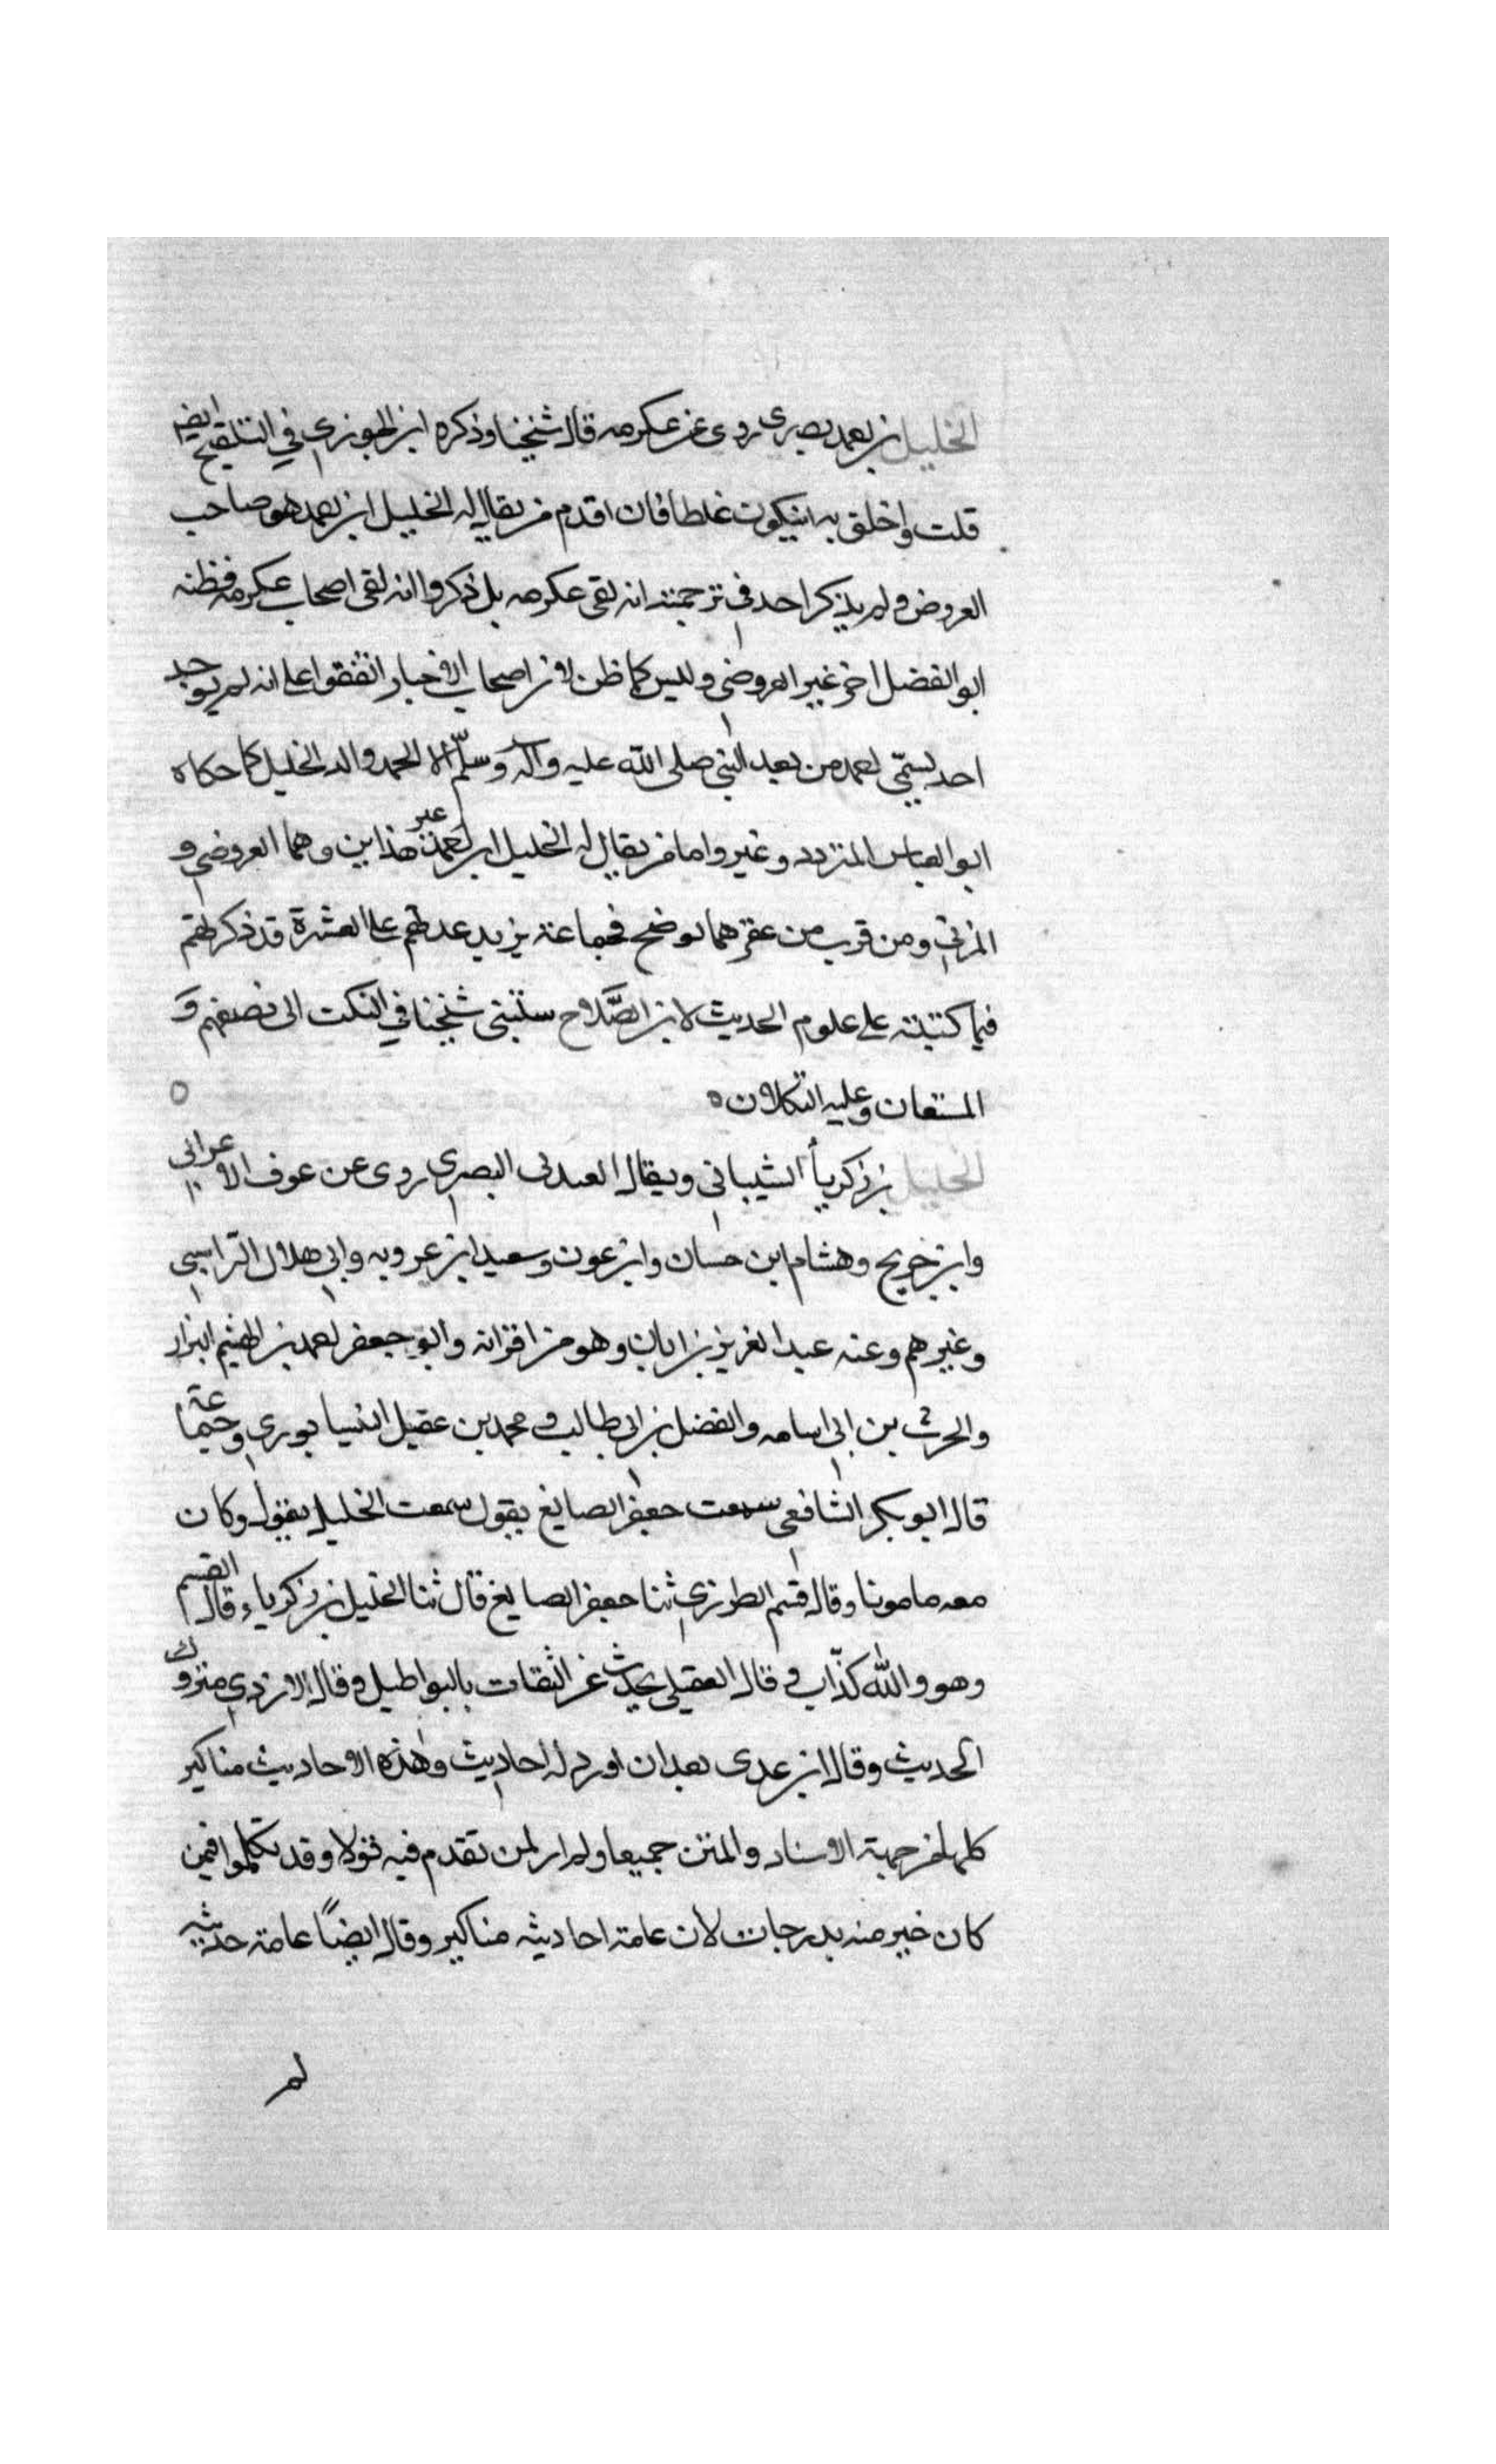 الخليل بن احمد بصرى روى عن عكرمه قال شيخنا وذكره ابن الجوزي في التلقيح ايضا
قلت واخلق به ان يكون غلطا فان اقدم من يقال له الخليل ابن احمد هو صاحب
العروض ولم يذكر احد في ترجمته انه لقى عكرمه بل ذكروا انه لقى اصحاب عكرمه فظنه
ابو الفضل اخر غير العروضي وليس كما ظن لان اصحاب الاخبار اتفقوا على انه لم يوجد
احد يسمّى احمد من بعد النبي صلى الله عليه وآله وسلّم الا احمد والد الخليل كما حكاه
ابو العباس المتردد وغير واما من يقال له الخليل ابن احمد غير هذاين وهما العروضي و
المزني ومن قرب من عقرهما لوضح فجماعة يزيد عدلهم على العشرة قد ذكرتهم
فيما كتبته على علوم الحديث لابن الصَّلاح ستبنى شيخنا في النكت الى نصفهم و
المستعان وعليه التكلان ه
الخليل بن زكريأ الشيباني ويقال العبدى البصري روى عن عوف الاعرابي
وابن خريج وهشام ابن حسان وابن عون وسعيد ابن عروبه وابي هلال الراسبي
وغيرهم وعنه عبد العزيز بن ابان وهو من اقرانه وابو جعفر احمد بن الهثيم البزار
والحرث بن ابي اسامه والفضل بن ابي طالب و محمد بن عقيل النيسابوري وجماعة
قال ابو بكر الشافعي سمعت جعفر الصايغ يقول سمعت الخليل يقول وكان
معه مامونا وقال قسم الطرزي ثنا جعفر الصايغ قال ثنا الخليل بن زكرياء وقال القسم
وهو والله كذّاب و قال العقيلي يحدث عن الثقات بالبواطيل وقال الازدي متروك
الحديث وقال ابن عدى بعد ان اورد له احاديث وهذه الاحاديث مناكير
كلها من جهة الاسناد والمتن جميعا ولم ار لمن تقدم فيه قولا وقد تكلموا فيمن
كان خير منه بدرجات لان عامة احاديثه مناكير وقال ايضًا عامة حديثه
لم